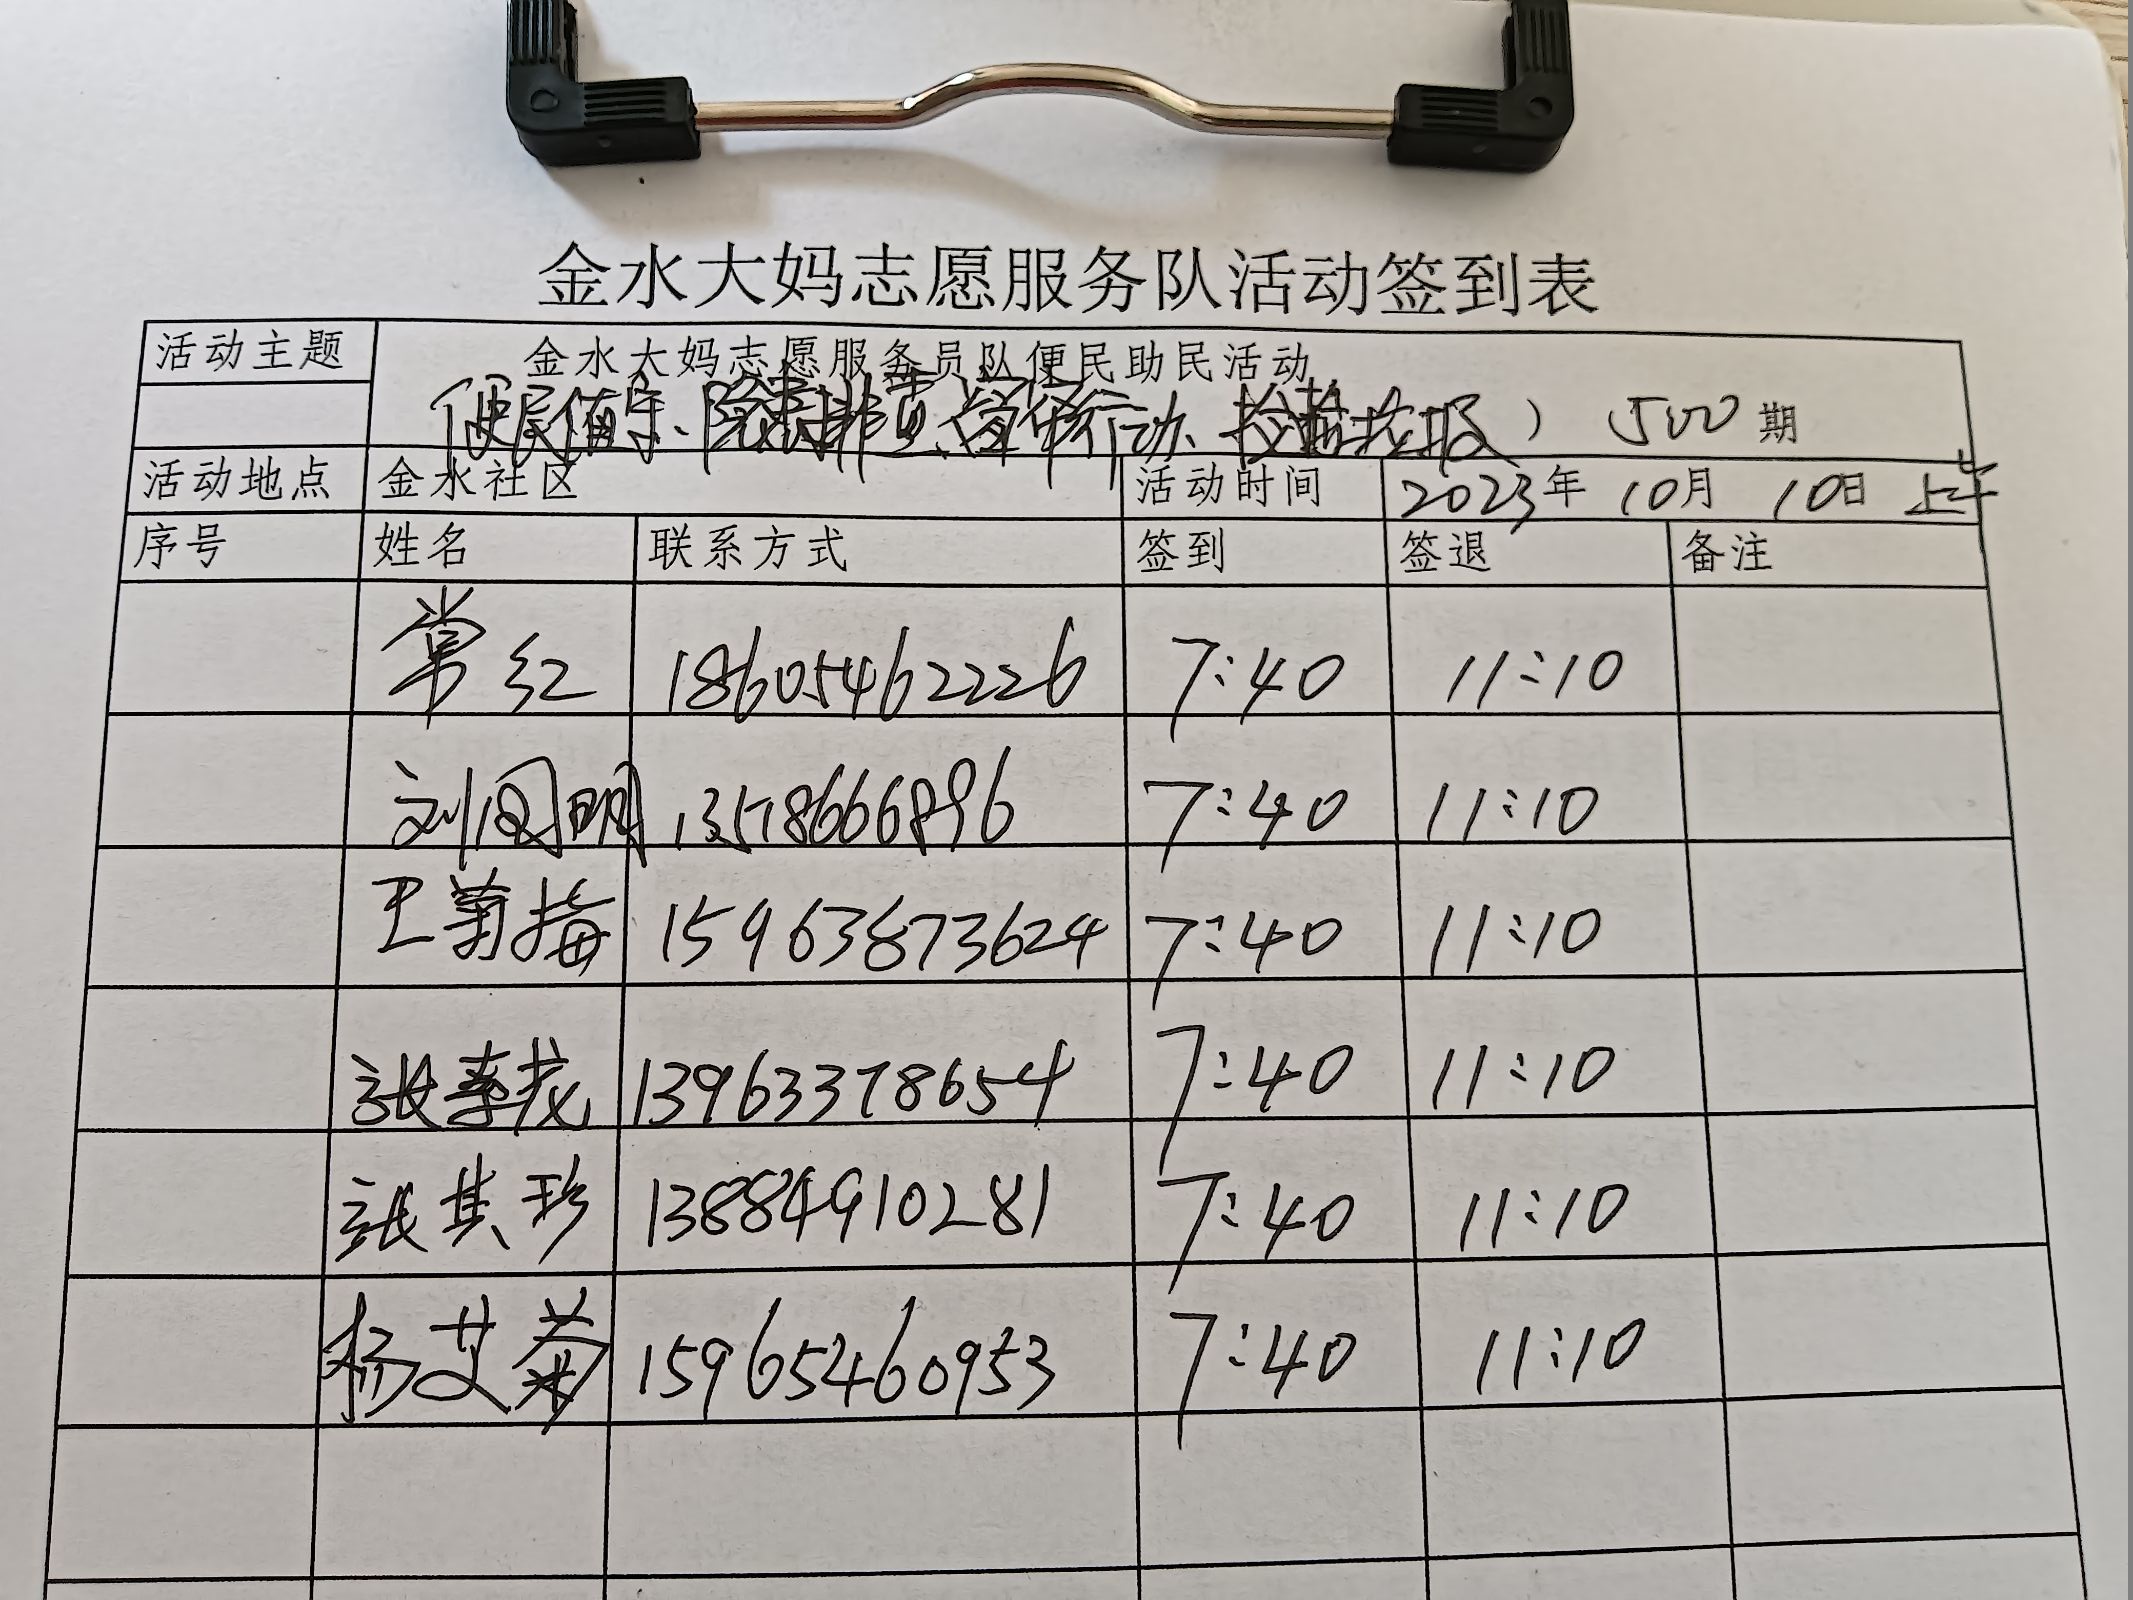 金水大妈志愿服务队活动签到表
活动主题 金水大妈志愿服务员队便民助民活动
便民值守、 行动、 ） 500期
活动地点 金水社区 活动时间 2023年 10月 10日 上午
序号 姓名 联系方式 签到 签退 备注
常红 18605462226 7:40 11:10
刘国明 13578666896 7:40 11:10
王菊梅 15963873624 7:40 11:10
张 13963378654 7:40 11:10
张其珍 13884910281 7:40 11:10
杨艾菊 15965460953 7:40 11:10